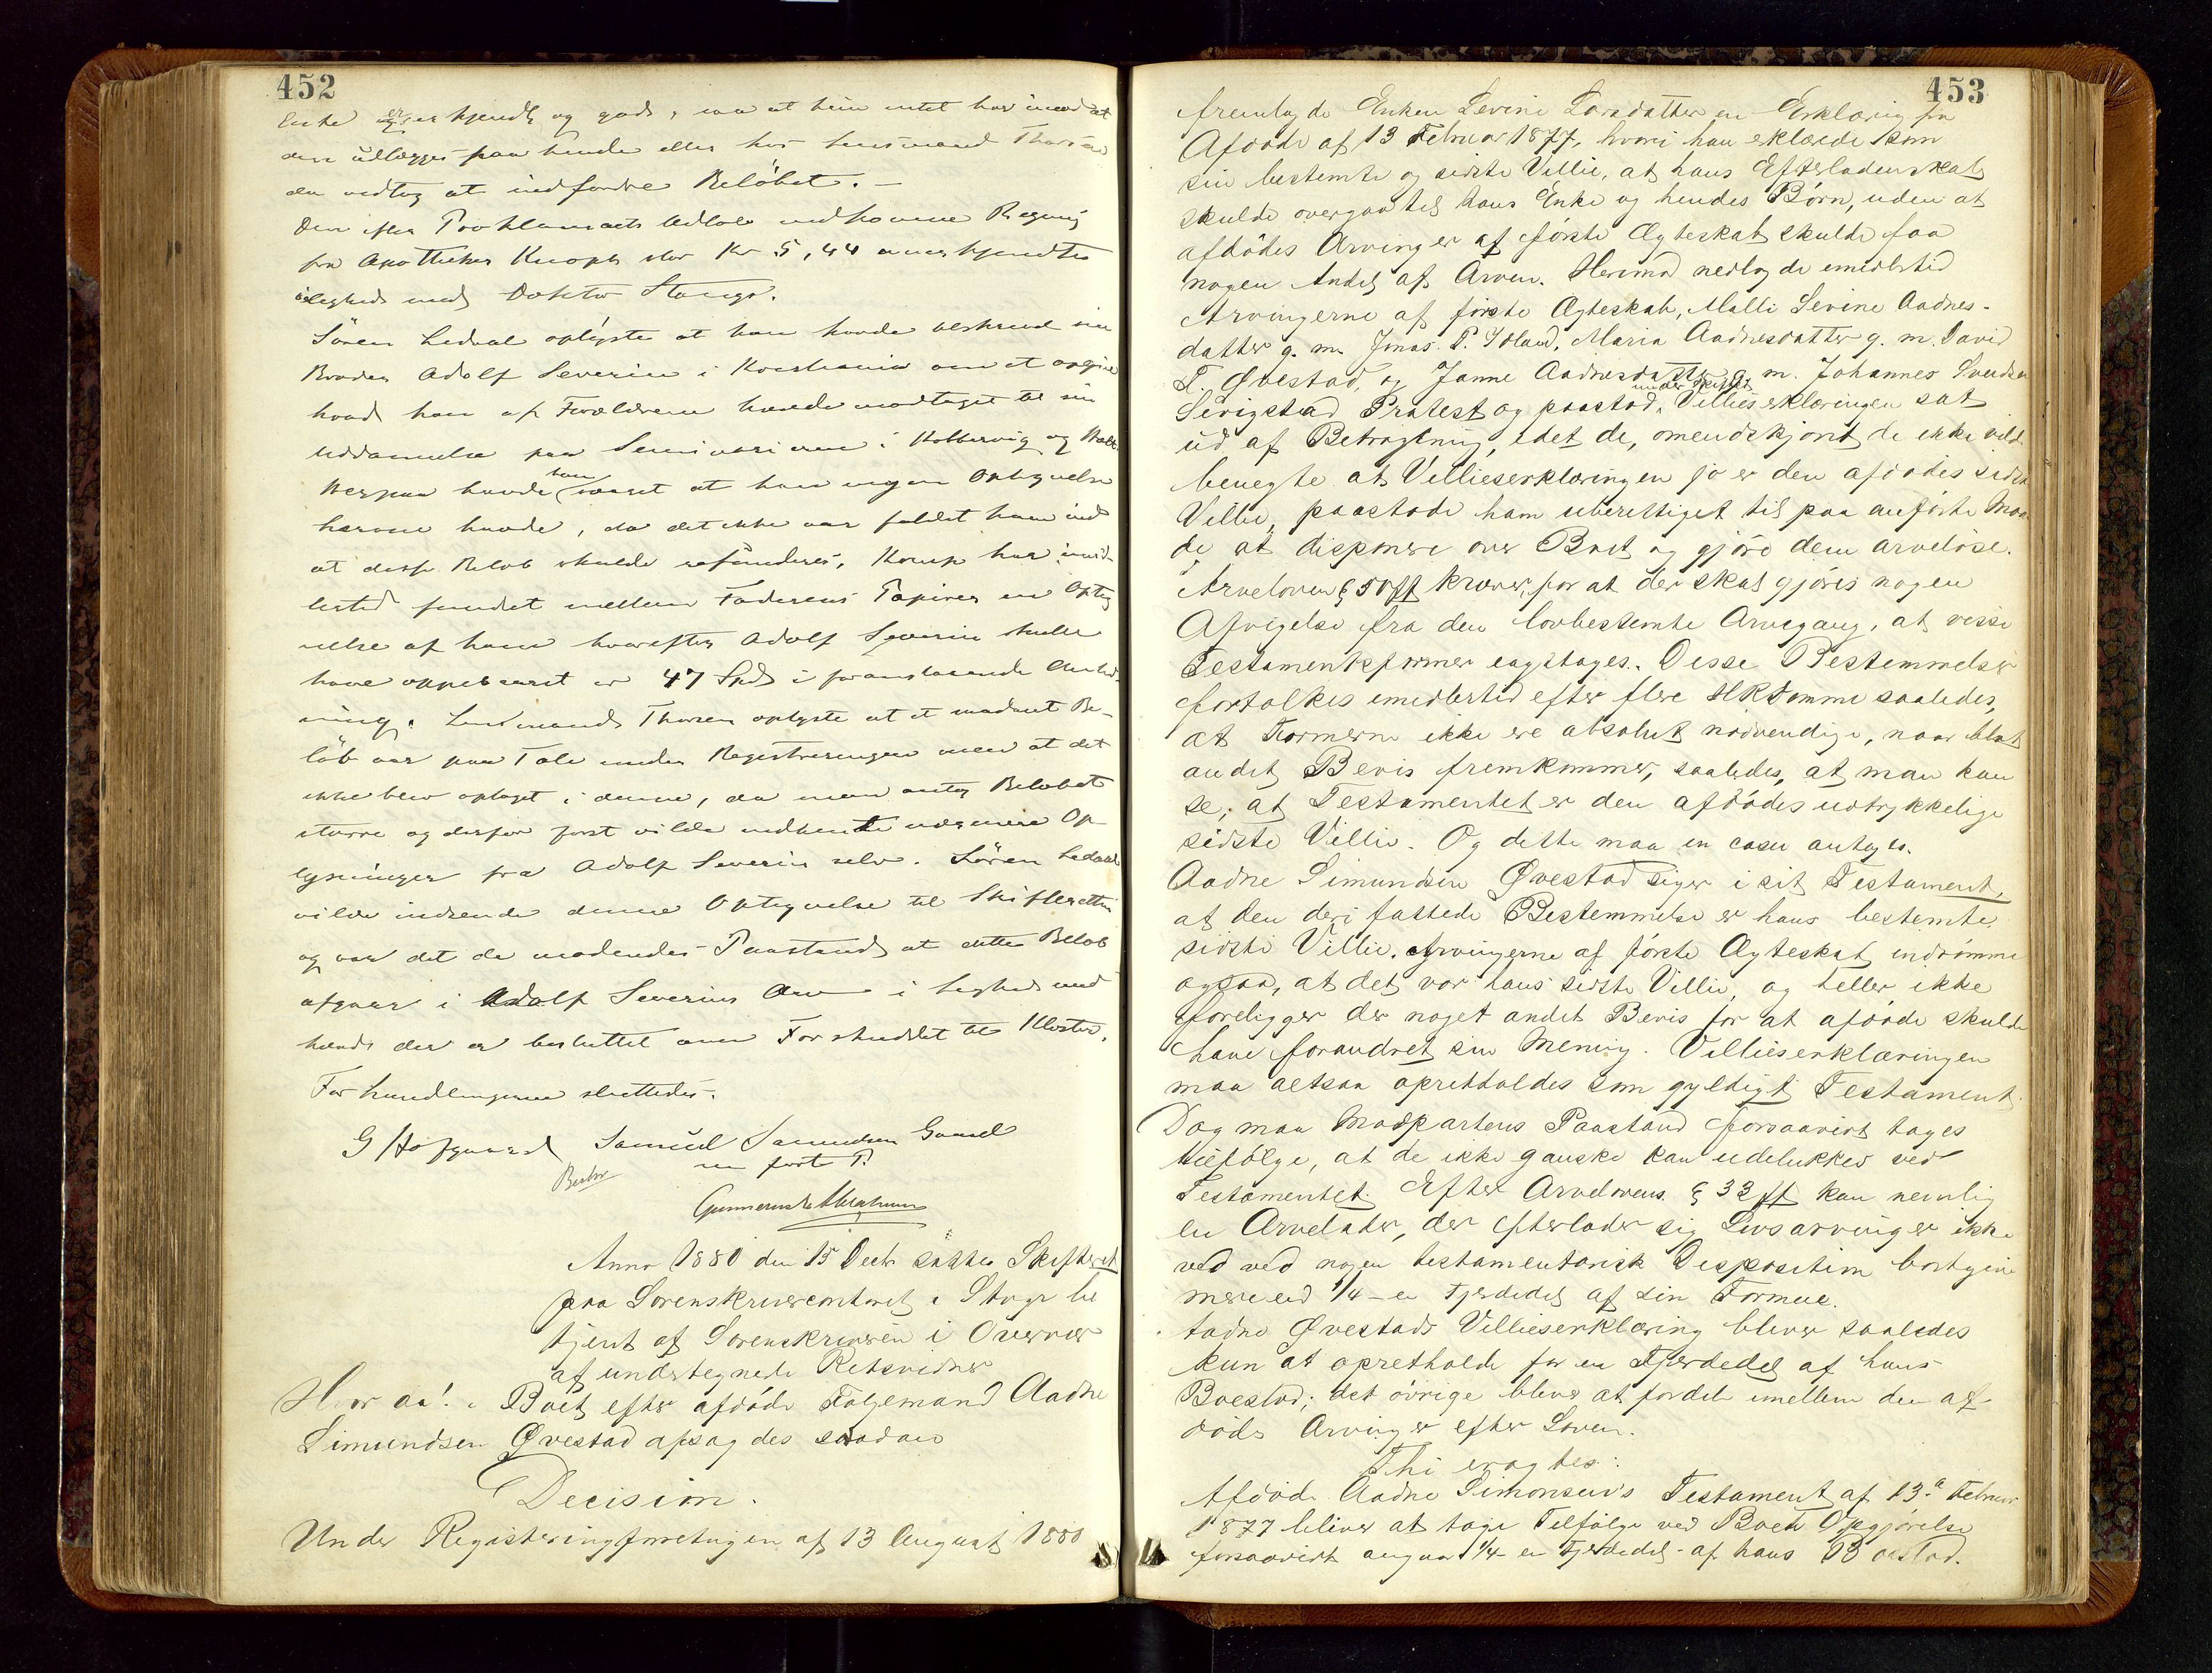 452
Enke er anerkjendt og godt, saa at hun intet har imod at
den udlægges paa hende eller hos Lensmand Thorsen
den vedtog at indfordre Beløbet. —
Den efter Proklamaets Udløb indkomne Regning
fra Apotheker Knoph stor Kr 5,44 anerkjendtes
i lighed med Doktor Stange.
Sören Ledaal oplyste at han havde tilskrevet sin
Broder Adolf Severin i Kristiania om at opgive
hvad han af Forældrene havde modtaget til sin
Uddannelse paa Seminarierne i Kobbervig og
Herpaa havde han svaret at han ingen Optegnelse
herom havde, da det ikke var faldet ham ind
at disse Beløb skulde refunderes, Komp har imid-
lertid fundet mellem Faderens Papirer en Opteg
nelse af ham hvorefter Adolf Severin skulde
have oppebaaret er 47 Spd i foranstaaende Anled-
ning. Lensmand Thorsen oplyste at et saadant Be-
löb var paa Tale under Registreringen men at det
ikke blev optaget i denne, da man antog Beløbet
større og derfor først vilde indhente nærmere Op-
lysninger fra Adolf Severin selv. Sören Ledaal
vilde indsende denne Optegnelse til Skifteretten
og var det de mødendes Paastand at dette Beløb
afgaar i Adolf Severins Arv i Lighed med
hvad der er besluttet om Forskuddet til
Forhandlingerne sluttedes.
G Hofgaard Samuel Samuelsen Gaard
m. f. P.
Gunnerius Abrahamsen
Anno 1880 den 15 Decbr sattes Skifteret
paa Sorenskrivercontoret i Stavgr be
tjent af Sorenskriveren i Overvær
af undertegnede Retsvidner
Hvor da! i Boet efter afdöde Folgemand Aadne
Simundsen Øvestad afsagdes saadan
Decision.
Under Registreringsforretningen af 13 August 1880
453
fremlagde Enken Sevine Larsdatter en Erklæring fra
Afdöde af 13 Februar 1877, hvori han erklærede som
sin bestemte og sidste Villie, at hans Efterladenskab
skulde overgaa til hans Enke og hendes Børn, uden at
afdödes Arvinger af første Ægteskab skulde faa
nogen Andel af Arven. Herimod nedlagde imidlertid
Arvingerne af første Ægteskab, Malli Sevine Aadnes-
datter g. m. Jonas P. Ydland, Maria Aadnesdatter g. m. David
T. Øvestad, og Janne Aadnesdatter g. m. Johannes Svendsen
Sevigstad Protest og paastod under Skiftet Villieserklæringen sat
ud af Betragtning, idet de, omendskjönt de ikke vilde
benegte at Villieserklæringen jo er den afdödes sidste
Villie, paastode ham uberettiget til paa anførte Maa
de at disponere over Boet og gjøre dem arveløse.
Arveloven § 50 ff kræver, for at der skal gjøres nogen
Afvigelse fra den lovbestemte Arvegang, at visse
Testamentsformer iagttages. Disse Bestemmelser
fortolkes imidlertid efter flere HRDomme saaledes,
at Formerne ikke ere absolut nødvendige, naar blot
andet Bevis fremkommer, saaledes, at man kan
se, at Testamentet er den afdödes udtrykkelige
sidste Villie. Og dette maa in casu antages.
Aadne Simundsen Øvestad siger i sit Testament,
at den deri fattede Bestemmelse er hans bestemte
sidste Villie. Arvingerne af første Ægteskab indrömme
ogsaa, at det var hans sidste Villie, og heller ikke
foreligger der noget andet Bevis for at afdöde skulde
have forandret sin Mening. Villieserklæringen
maa altsaa opretholdes som gyldigt Testament.
Dog maa Modpartens Paastand forsaavidt tages
tilfølge, at de ikke ganske kan udelukkes ved
Testamentet. Efter Arvelovens § 33 ff kan nemlig
en Arvelader, der efterlader sig Livsarvinger ikke
ved ved nogen testamentarisk Disposition bortgive
mere end 1/4 - en Fjerdedel af sin Formue.
Aadne Øvestads Villieserklæring bliver saaledes
kun at opretholde for en Fjerdedel af hans
Boeslod; det övrige bliver at fordele imellem den af-
dödes Arvinger efter Loven.
Thi eragtes:
Afdöde Aadne Simonsen's Testament af 13de Februar
1877 bliver at tage Tilfölge ved Boets Opgjörelse
forsaavidt angaar 1/4 - en Fjerdedel - af hans Boeslod.